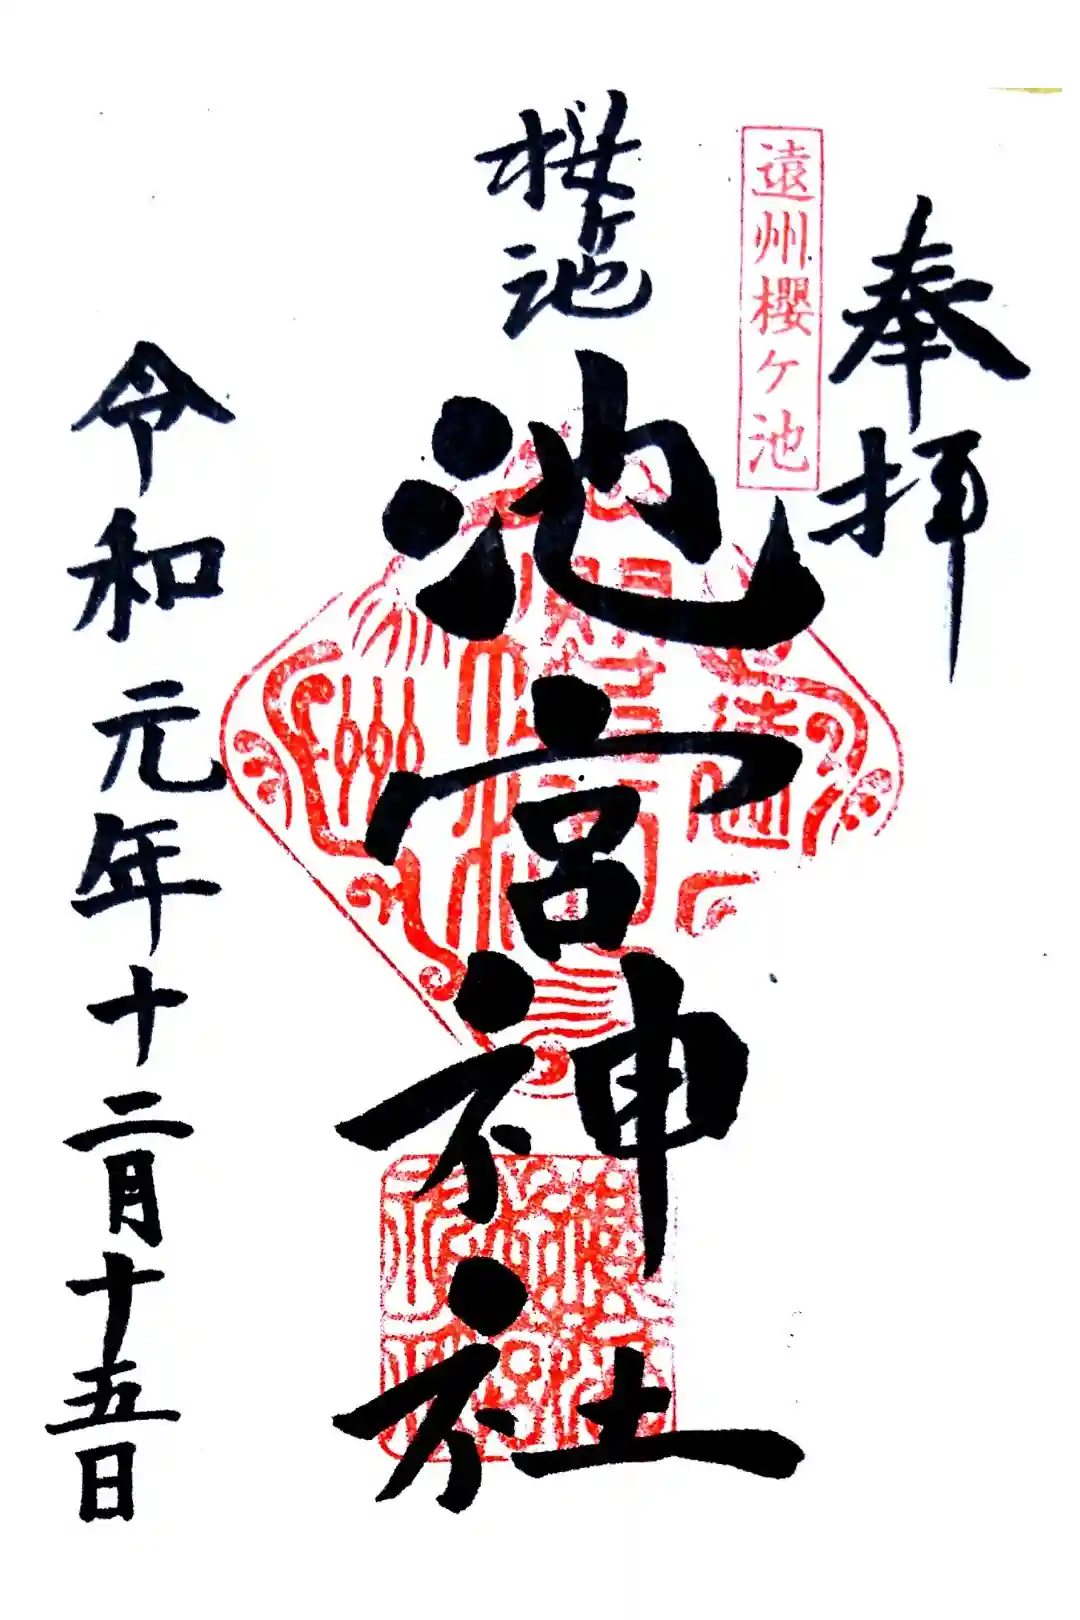 奉拝
遠州櫻ケ池
桜ヶ池
池宮神社
令和元年十二月十五日